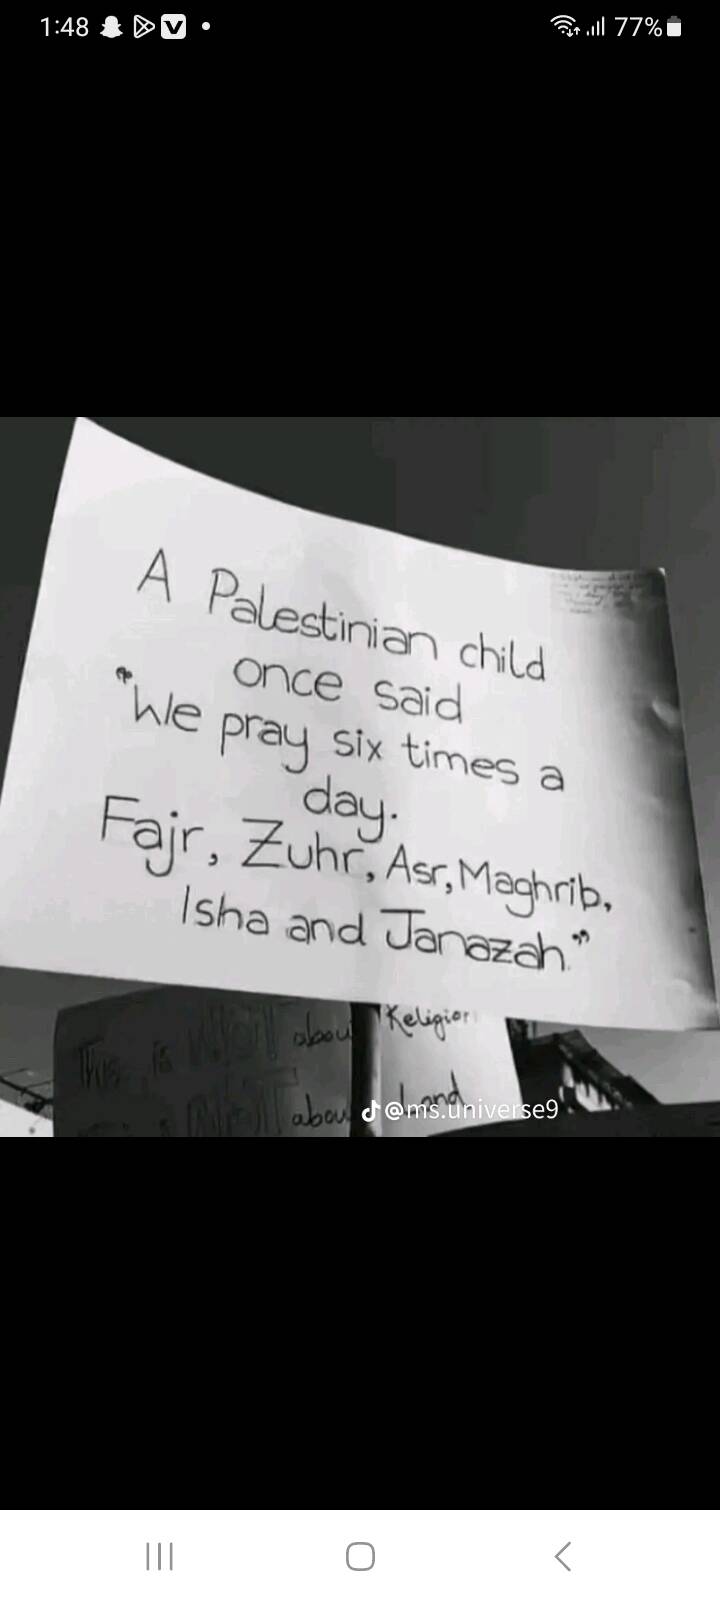 1:48
77%
A Palestinian child
once said
"We pray six times a
day.
Fajr, Zuhr, Asr, Maghrib,
Isha and Janazah."
This is NOT about Religion
about Land
@ms.universe9